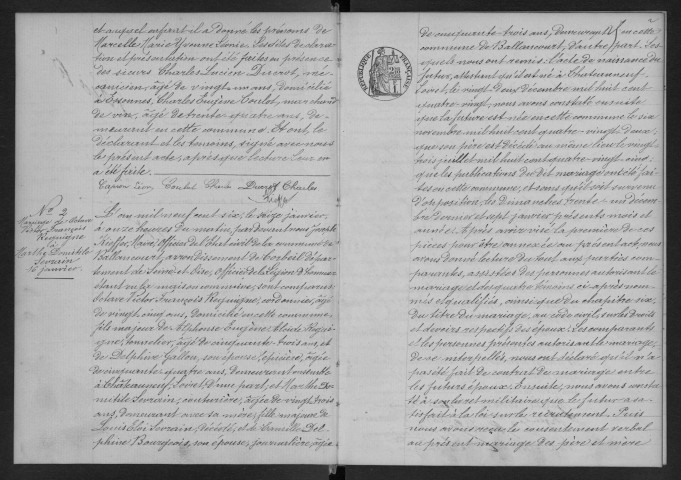 et auquel enfant il a donné les prénoms de
Marcelle Marie Yvonne. Lesdites déclara-
tion et présentation ont été faites en présence
des sieurs Charles Lucien Ducrot, mé-
canicien, âgé de vingt neuf ans, domicilié
à Essonnes, Charles Eugène marchand
de vin, âgé de trente quatre ans, de-
meurant en cette commune. Et ont, le
déclarant et les témoins, signé avec nous
le présent acte, après que lecture leur en
a été faite.
Charles
No 2
Mariage de Octave
Victor François
et
Marthe Domitile
Sevrain
16 janvier
L'an mil neuf cent six, le seize janvier,
à onze heures du matin, par devant nous Joseph
Maire, Officier de l'Etat civil de la commune de
Ballancourt, arrondissement de Corbeil, Dépar-
tement de Seine et Oise, Officier de la Légion d'honneur
étant en la maison commune, sont comparus:
Octave Victor François cordonnier, âgé
de vingt cinq ans, domicilié en cette commune,
fils majeur de Alphonse Eugène
tonnelier, âgé de cinquante trois ans, et
de Delphine Gallon, son épouse, épicière, âgée
de cinquante quatre ans, demeurant ensemble
à Châteauneuf, Loiret, d'une part, et Marthe Do-
mitile Sevrain, couturière, âgée de vingt trois
ans, demeurant avec sa mère, fille majeure de
Louis Eloi Sevrain, décédé, et de Camille Del-
phine Bourgeois, son épouse, journalière, âgée
2
RÉPUBLIQUE FRANÇAISE
de cinquante-trois ans, demeurant en cette
commune de Ballancourt, d'autre part. Les-
quels nous ont remis l'acte de naissance du
futur, attestant qu'il est né à Châteauneuf,
Loiret, le vingt deux décembre mil huit cent
quatre-vingt, nous avons constaté ensuite
que la future est née en cette commune le six
novembre mil huit cent quatre-vingt-deux,
que son père est décédé au même lieu le vingt
trois juillet mil huit cent quatre-vingt-cinq,
que les publications du dit mariage ont été faites
en cette commune, et sans qu'il soit survenu
d'opposition, les Dimanches trente-un décem-
bre dernier et sept janvier présents mois et
année. Et après avoir visé la première de ces
pièces pour être annexée au présent acte, nous
avons donné lecture de tout aux parties com-
parantes, assistées des personnes autorisant le
mariage et des quatre témoins ci-après nom-
més et qualifiés, ainsi que du chapitre six
du titre du mariage, au code civil, sur les droits
et devoirs respectifs des époux. Les comparants
et les personnes présentes autorisant le mariage,
de ce interpellés, nous ont déclaré qu'il n'a
pas été fait de contrat de mariage entre
les futurs époux. Ensuite, nous avons consta-
té à son livret militaire que le futur a sa-
tisfait à la loi sur le recrutement. Puis
nous avons reçu le consentement verbal
au présent mariage des père et mère